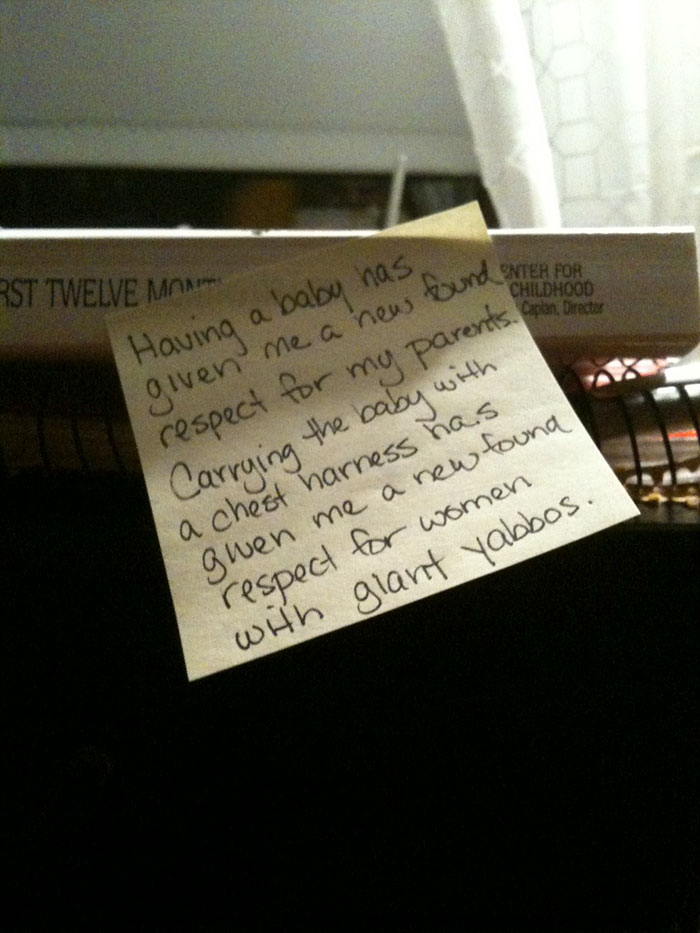 RST TWELVE MONT
ENTER FOR
CHILDHOOD
Caplan, Director
Having a baby has
given me a new found
respect for my parents.
Carrying the baby with
a chest harness has
given me a new found
respect for women
with giant yabbos.